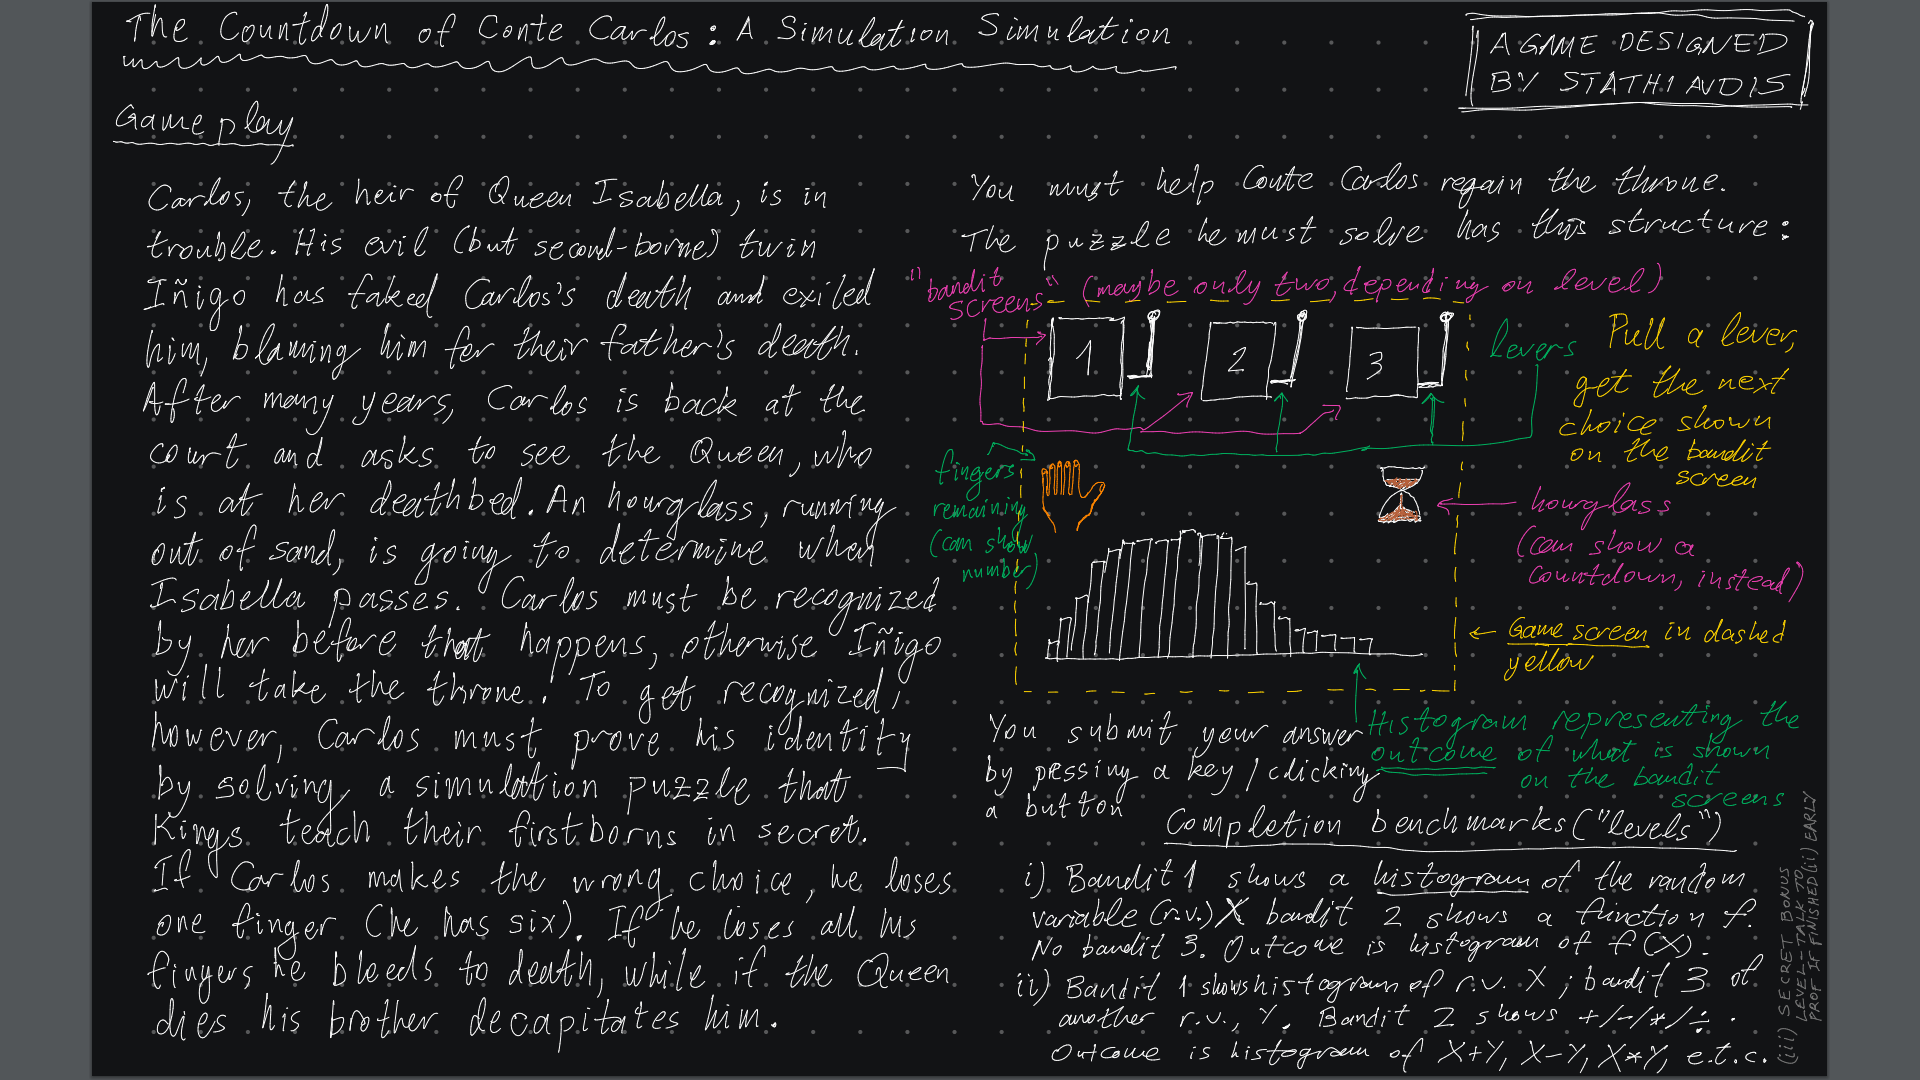 The Countdown of Conte Carlos: A Simulation Simulation
A GAME DESIGNED
BY STATHIAUDIS
Gameplay
Carlos, the heir of Queen Isabella, is in
trouble. His evil (but second-borne) twin
Iñigo has faked Carlos's death and exiled
him, blaming him for their father's death.
After many years, Carlos is back at the
court and asks to see the Queen, who
is at her deathbed. An hourglass, running
out of sand, is going to determine when
Isabella passes. Carlos must be recognized
by her before that happens, otherwise Iñigo
will take the throne. To get recognized,
however, Carlos must prove his identity
by solving a simulation puzzle that
Kings teach their firstborns in secret.
If Carlos makes the wrong choice, he loses
one finger (he has six). If he loses all his
fingers he bleeds to death, while if the Queen
dies his brother decapitates him.
You must help Conte Carlos regain the throne.
The puzzle he must solve has this structure:
"bandit
screens" (maybe only two, depending on level)
1
2
3
levers
Pull a lever,
get the next
choice shown
on the bandit
screen
fingers
remaining
(can show
number)
hourglass
(can show a
countdown, instead)
Game screen in dashed
yellow
Histogram representing the
outcome of what is shown
on the bandit
screens
You submit your answer
by pressing a key / clicking
a button
Completion benchmarks ("levels")
i) Bandit 1 shows a histogram of the random
variable (r.v.) X bandit 2 shows a function f.
No bandit 3. Outcome is histogram of f(X).
ii) Bandit 1 shows histogram of r.v. X; bandit 3 of
another r.v., Y. Bandit 2 shows +/-/*/÷.
Outcome is histogram of X+Y, X-Y, X*Y, e.t.c.
(iii) SECRET BONUS
LEVEL - TALK TO
PROF IF FINISHED (ii) EARLY